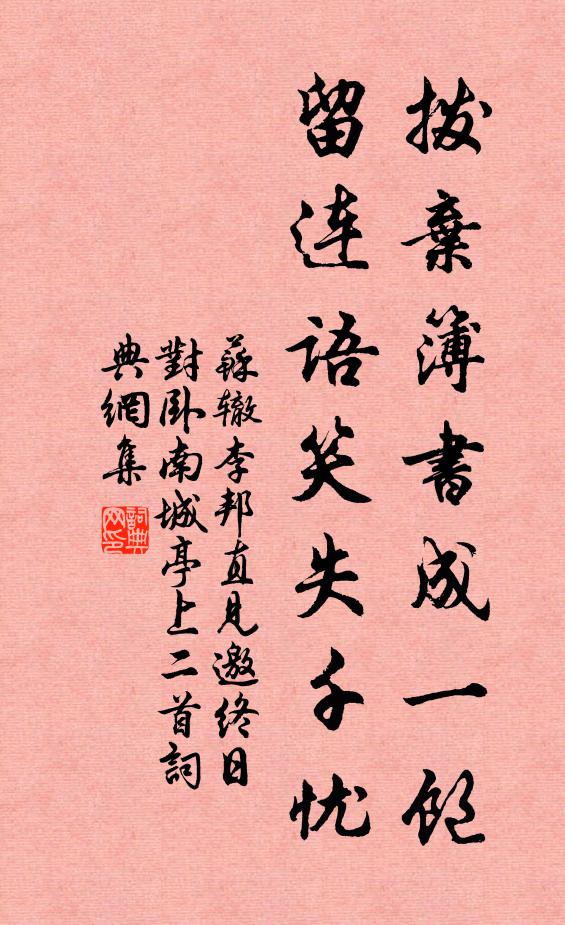 拨棄簿書成一飽
留連語笑失千忧
蘇辙李邦直見邀終日
對卧南城亭上二首詞
典網集
詞典
网印